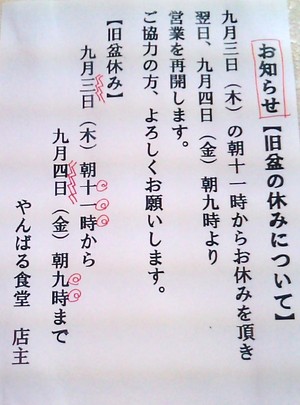 お知らせ【旧盆の休みについて】
九月三日（木）の朝十一時からお休みを頂き
翌日、九月四日（金）朝九時より
営業を再開します。
ご協力の方、よろしくお願いします。
【旧盆休み】
九月三日（木）朝十一時から
九月四日（金）朝九時まで
やんばる食堂 店主